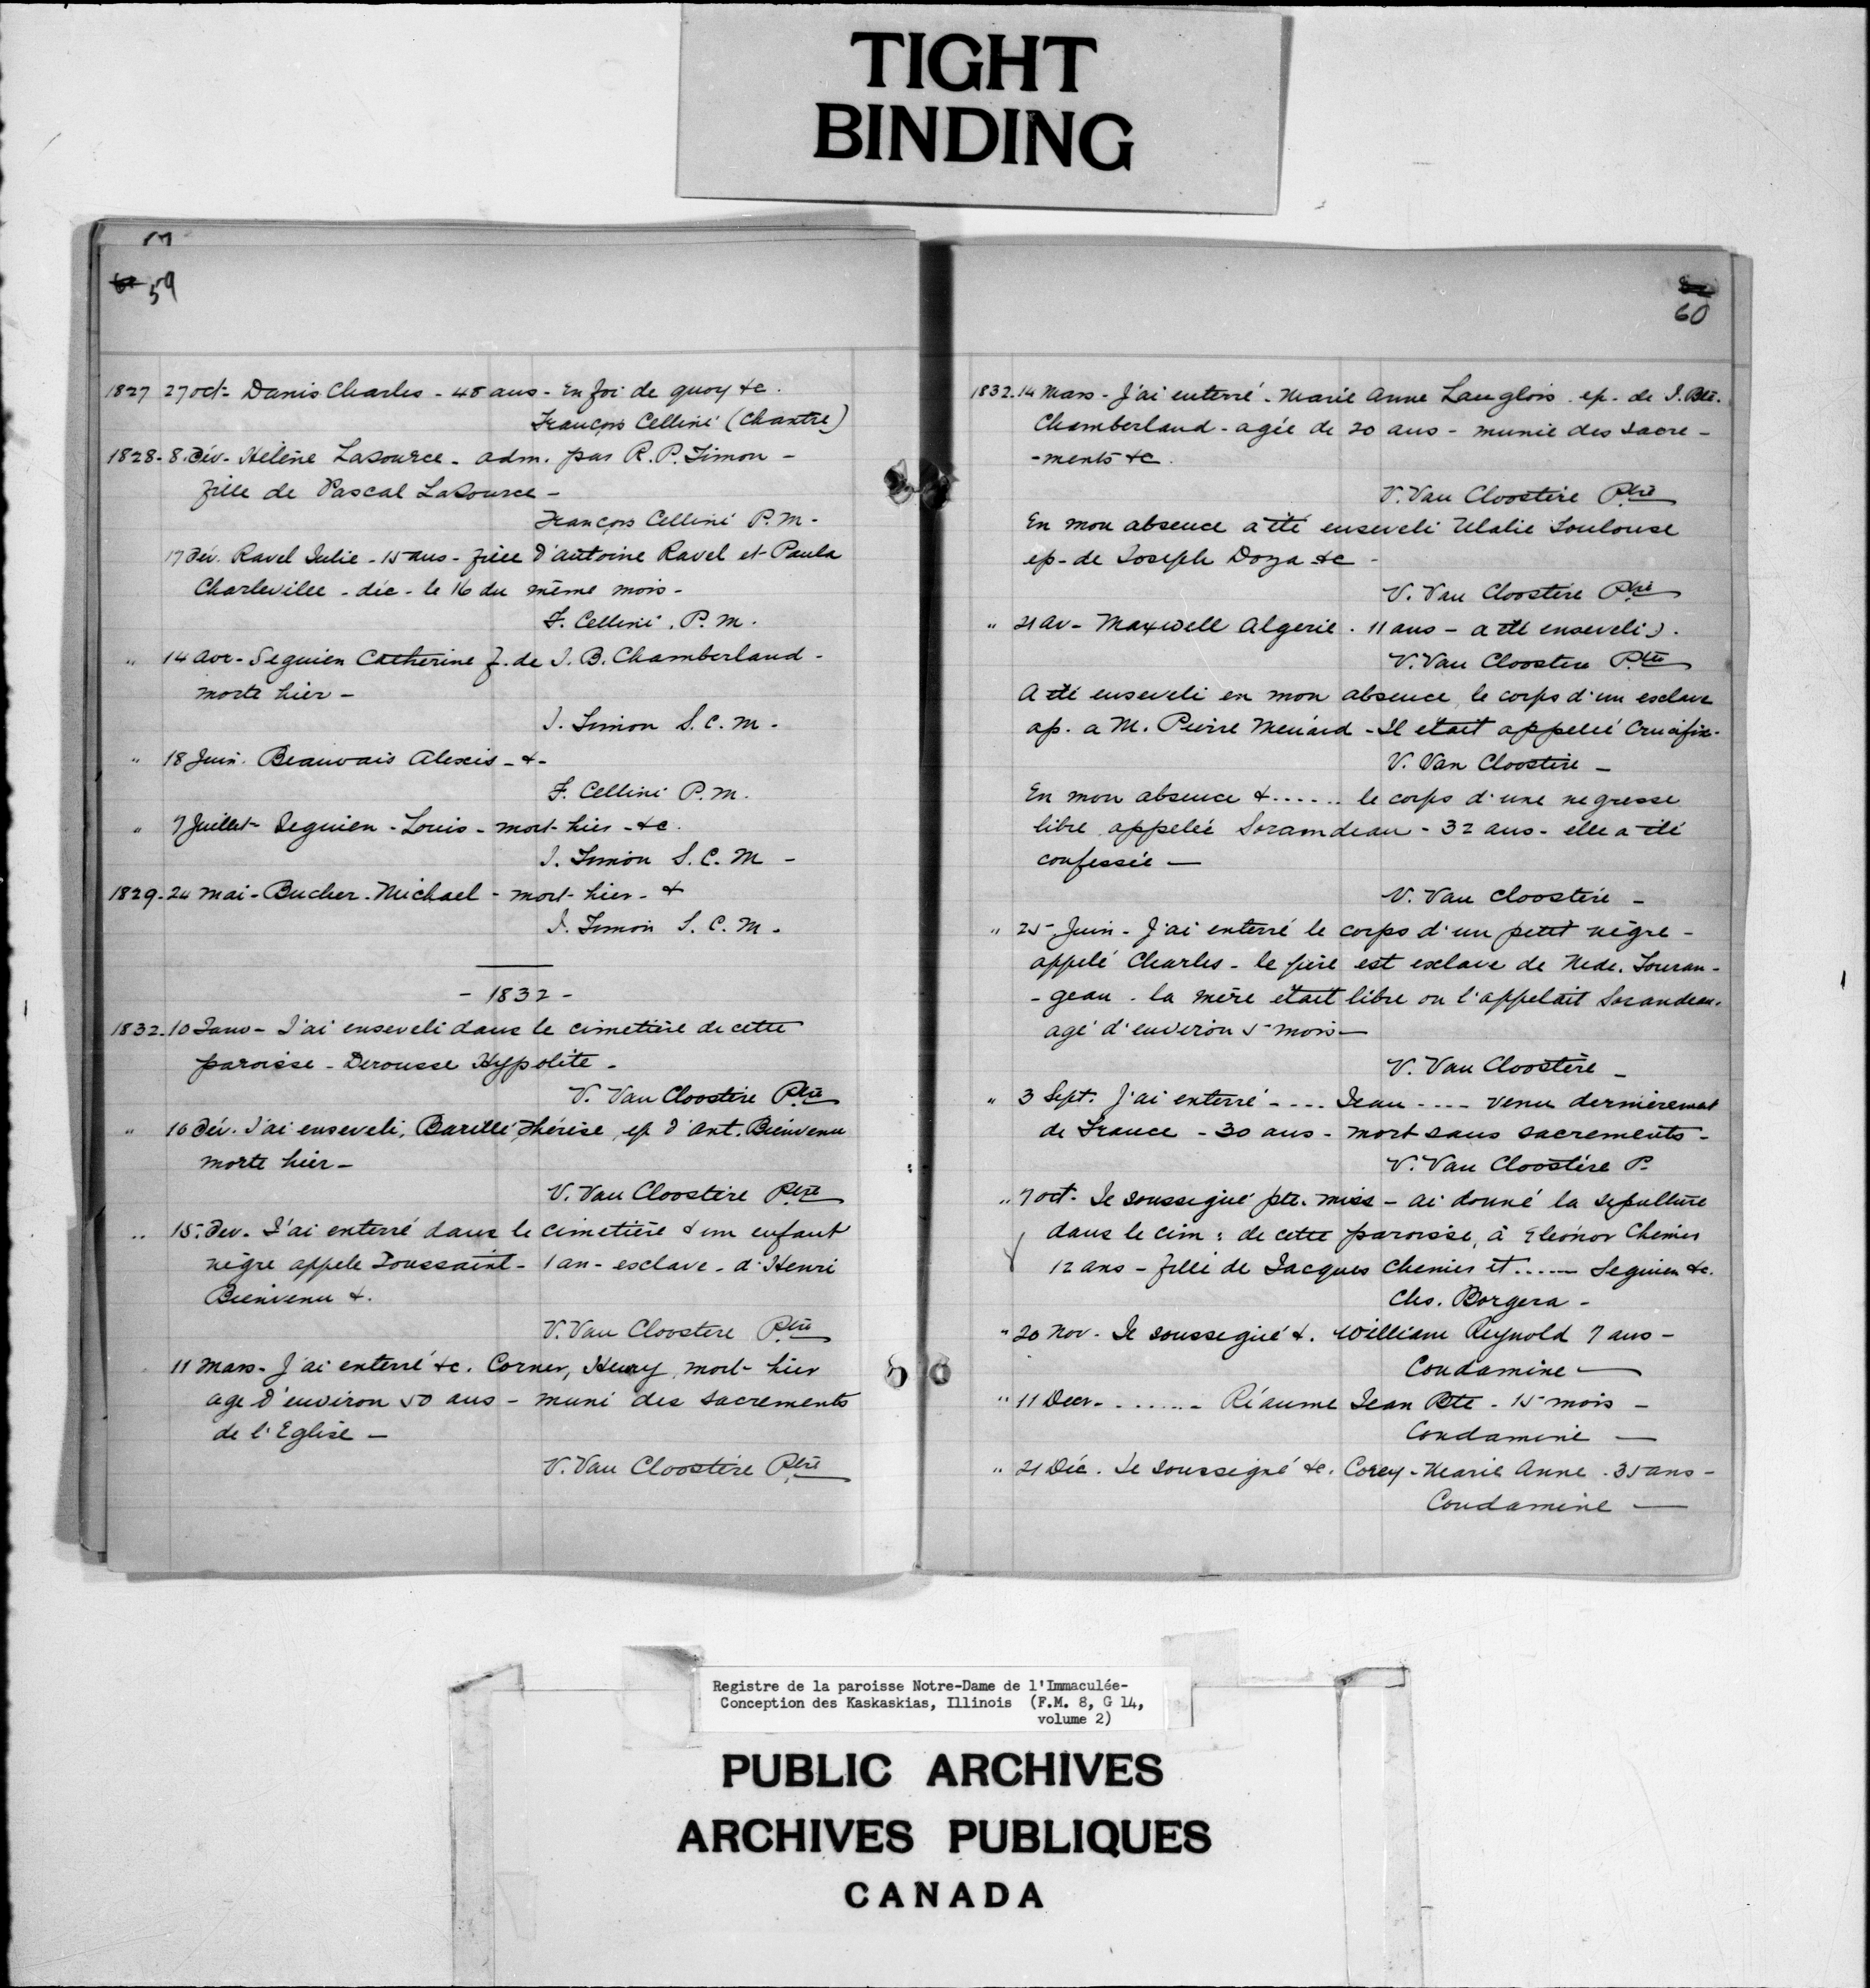 TIGHT
BINDING
59
1827 27 oct- Danis Charles - 48 ans - En foi de quoy &c.
François Cellini (Chantre)
1828-8. Fév- Hélène LaSource - adm. par R. P. Timon -
fille de Pascal LaSource -
François Cellini P. M.
17 Fév. Ravel Julie - 15 ans - fille d'Antoine Ravel et Paula
Charleville - déc - le 16 du même mois -
F. Cellini, P. M.
" 14 avr- Seguien Catherine f. de J. B. Chamberland -
morte hier -
J. Timon S. C. M -
" 18 Juin. Beauvais Alexis - & -
F. Cellini P. M.
" 7 Juillet- Seguien - Louis - mort- hier - &c.
J. Timon S. C. M -
1829-24 mai - Bucher - Michael - mort- hier - &
J. Timon S. C. M -
- 1832 -
1832-10 Janv - J'ai enseveli dans le cimetière de cette
paroisse - Derousse Hypolite -
V. Van Cloostère Ptre
" 10 Fév. J'ai enseveli, Barellé Thérèse, ep d'Ant. Bienvenu
morte hier -
V. Van Cloostère Ptre
" 15. Fev. J'ai enterré dans le cimetière & un enfant
nègre appele Toussaint - 1 an - esclave - d'Henri
Bienvenu &.
V. Van Cloostere Ptre
11 Mars - J'ai enterré &c. Corner, Henry, mort- hier
age d'environ 50 ans - muni des sacrements
de l'Eglise -
V. Van Cloostère Ptre
60
1832. 14 Mars - J'ai enterré - Marie Anne Langlois - ep. de J. Bte.
Chamberland - agée de 20 ans - munie des sacre -
-ments &c.
V. Van Cloostère Ptre
En mon absence a été enseveli Ulalie Toulouse
ep- de Joseph Doza &c -
V. Van Cloostère Ptre
" 21 av - Maxwell Algerie. 11 ans - a été enseveli).
V. Van Cloostere Ptre
A été enseveli en mon absence, le corps d'un esclave
ap. a M. Pierre Menard - Il était appellé Crucifix -
V. Van Cloostère -
En mon absence & ...... le corps d'une negresse
libre appelée Soramdeau - 32 ans - elle a été
confessée -
V. Van Cloostère -
" 25 Juin - J'ai enterré le corps d'un petit nègre -
appelé Charles - le père est esclave de Mede. Touran -
- geau - la mère était libre on l'appelait Sarandeau.
agé d'environ 5 mois -
V. Van Cloostère -
" 3 Sept. J'ai enterré - ... Jean .... venu dernièrement
de France - 30 ans - mort sans sacrements -
V. Van Cloostère P.
" 7 oct. Je soussigné ptr. miss - ai donné la sepulture
dans le cim: de cette paroisse, à Eleonor Chenier
12 ans - fille de Jacques Chenier et ...... Seguien &c.
Chs. Borgera -
" 20 Nov - Je soussigné &. William Reynold 7 ans -
Condamine -
" 11 Decr. ........ Réaume Jean Bte - 15 mois -
Condamine -
" 21 Déc. Je soussigné &c. Corey - Marie Anne. 35 ans -
Condamine -
Registre de la paroisse Notre-Dame de l'Immaculée-
Conception des Kaskaskias, Illinois (F.M. 8, G 14,
volume 2)
PUBLIC ARCHIVES
ARCHIVES PUBLIQUES
CANADA